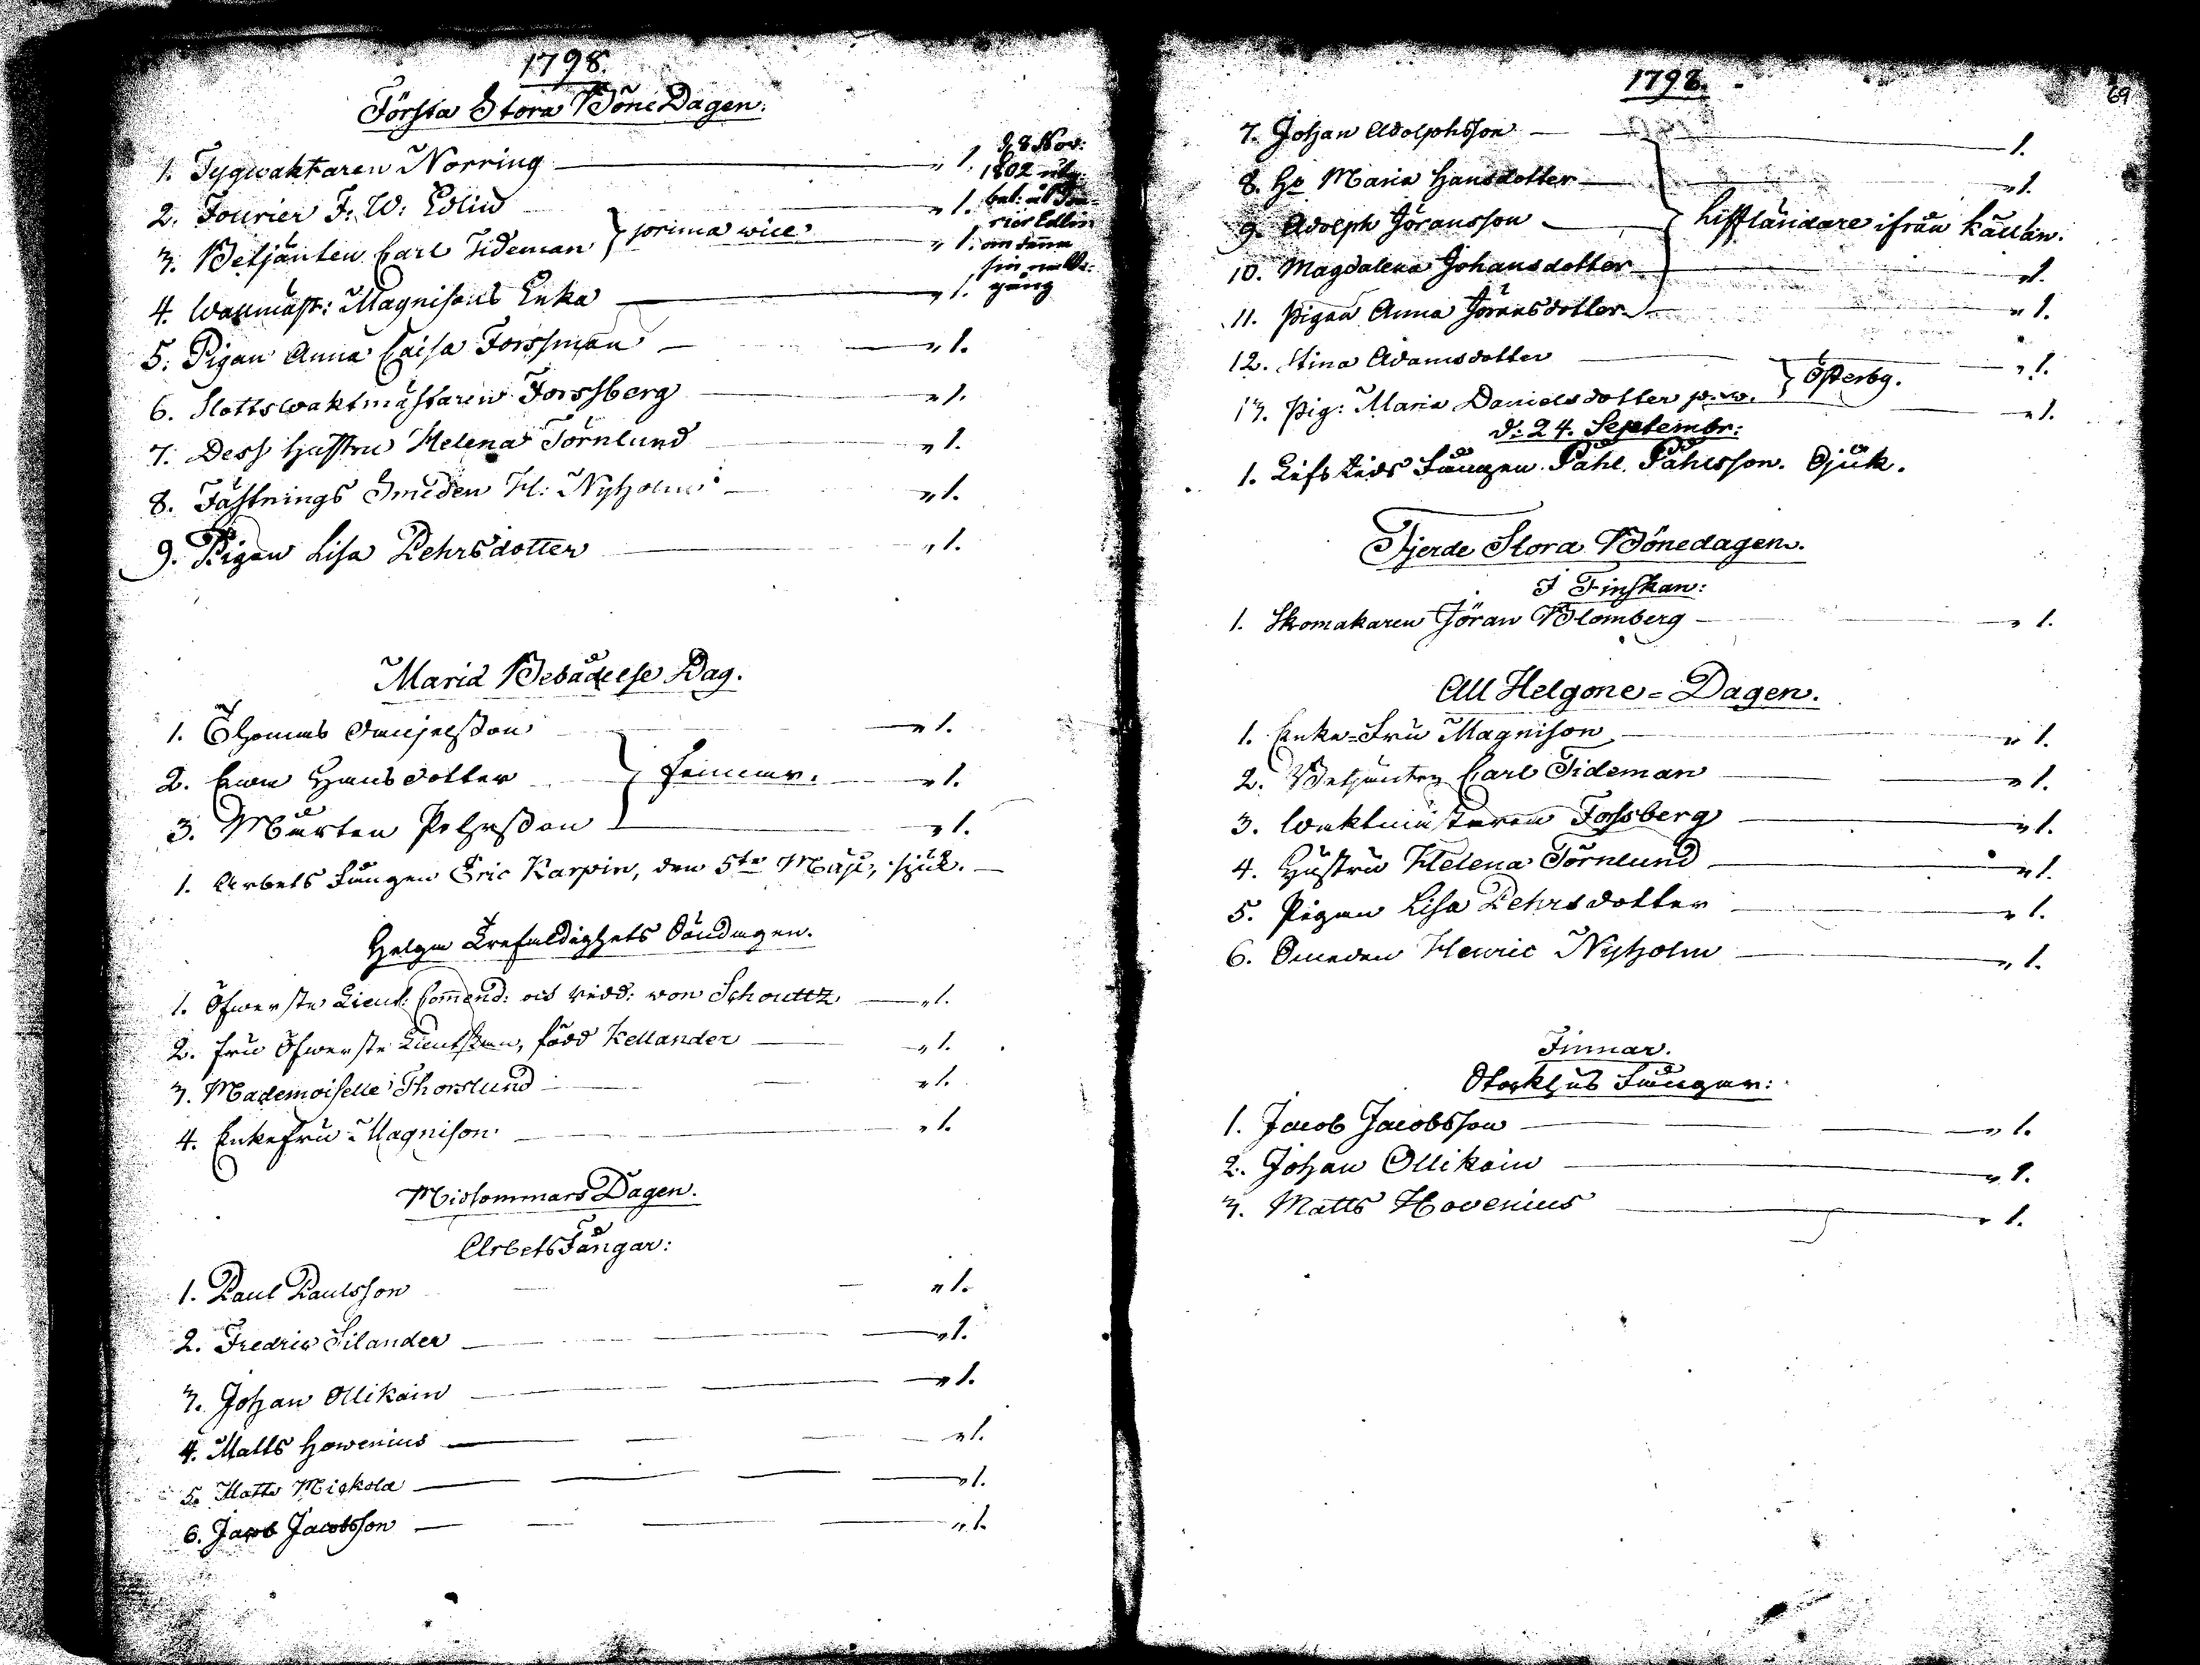 1798.
Första Stora BöneDagen.
1. Tygwaktaren Norring — „ 1.
2. Fourier F: W: Edlin — „ 1.
3. Betjänten Carl Tideman } prima vice — „ 1.
4. Wallmäst: Magnisons Enka — „ 1.
d. 8 Nov:
1802 utg.
rier Edlin
om denna
sin
gång
5. Pigan Anna Caisa Forssman — „ 1.
6. Slottswaktmästaren Forssberg — „ 1.
7. Dess Hustru Helena Törnlund — „ 1.
8. Fästnings Smeden H: Nyholm — „ 1.
9. Pigan Lisa Pehrsdotter — „ 1.
Mariæ Bebådelse Dag.
1. Thomas — „ 1.
2. Hansdotter } Finnar. — „ 1.
3. Mårten Pehrsson — „ 1.
1. Arbets Fången Eric Karpin, den 5te Maji, sjuk. —
Helga Trefaldighets Söndagen.
1. Öfwerste Lieut: Com̄end: och Ridd: von Schoultz — „ 1.
2. Fru Öfwerste Lieutskan, född Kellander — „ 1.
3. Mademoiselle Thorslund — „ 1.
4. Enkefru Magnison — „ 1.
Midsommars Dagen.
ArbetsFångar:
1. Paul Paulsson — „ 1.
2. Fredric Silander — „ 1.
3. Johan Ollikain — „ 1.
4. Matts Howenius — „ 1.
5. Matts Mickola — „ 1.
6. Jacob Jacobsson — „ 1.
1798.
69
7. Johan Adolphsson — 1.
8. Ho Maria Hansdotter — „ 1.
9. Adolph Jöransson — } Lifländare ifrån Källan.
10. Magdalena Johansdotter — „ 1.
11. Pigan Anna Jöransdotter — „ 1.
12. Stina Adamsdotter — „ 1.
13. Pig: Maria Danielsdotter p. v. } Österbg. — „ 1.
d: 24. Septembr:
1. Lifstids Fången Påhl Påhlsson. Sjuk.
Fjerde Stora Bönedagen.
I Finskan:
1. Skomakaren Jöran Blomberg — „ 1.
All Helgone=Dagen.
1. Enke=Fru Magnison — „ 1.
2. Betjänten Carl Tideman — „ 1.
3. Waktmästaren Forssberg — „ 1.
4. Hustru Helena Törnlund — „ 1.
5. Pigan Lisa Pehrsdotter — „ 1.
6. Smeden Henric Nyholm — „ 1.
Finnar.
Stockhus Fångar:
1. Jacob Jacobsson — „ 1.
2. Johan Ollikain — „ 1.
3. Matts Hovenius — „ 1.